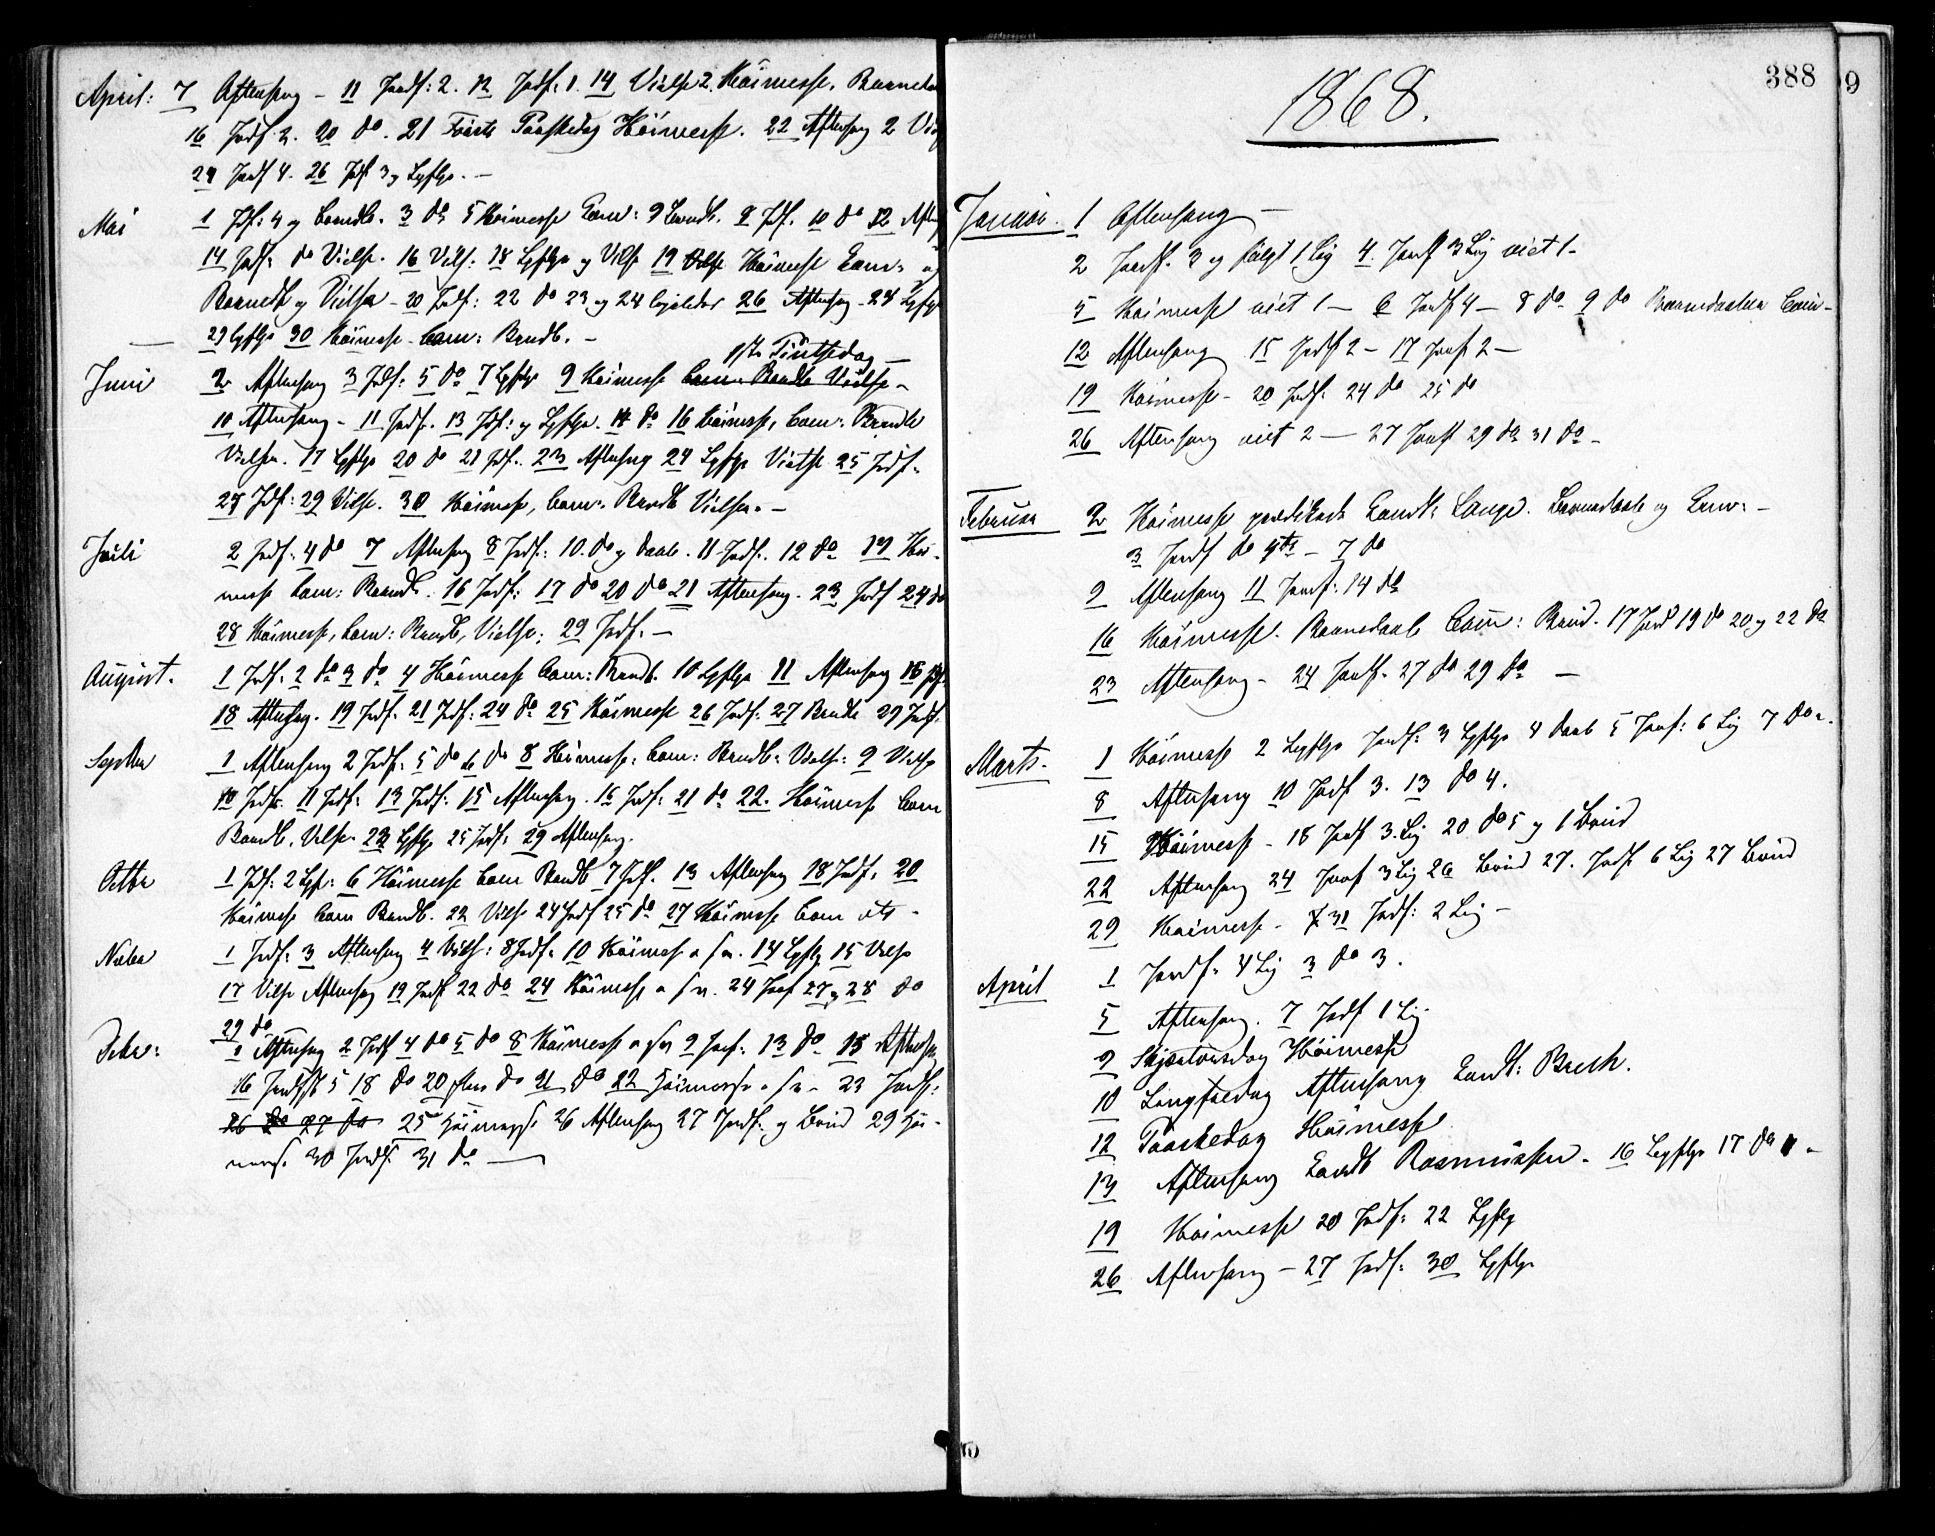 April: 7 Aftensang – 11 Jordf: 2. 12 Jordf: 1. 14 Vielse 2. Höimesse. Barneda
16 Jordf 2. 20 do. 21 Förste Paaskedag Höimesse. 22 Aftensang 2 Vie
24 Jordf 4. 26 Jdf 3 og Ligflge. –
Mai 1 Jdf: 4 og Barndb. 3 do 5 Höimesse Com: 9 Barndb. 9 Jdf. 10 do 12 Aften
14 Jordf: do Vielse. 16 Viels: 18 Ligflge og Viels 19 Höimesse Com: og
Barndb og Vielse – 20 Jordf: 22 do 23 og 24 26 Aftensang – 24 Ligflge
29 Ligflge 30 Höimesse Com: Barndb. –
1ste Pintsedag –
Juni 2 Aftensang 3 Jdf: 5 do 7 Ligflge 9 Höimesse Com: Barndb Vielse –
10 Aftensang – 11 Jordf. 13 Jdf: og Ligflge. 14 do 16 Höimesse, Com: Barndb
Vielse. 17 Ligflge 20 do 21 Jdf. 23 Aftensang 24 Ligflge Vielse 25 Jordf.
27 Jdf: 29 Vielse. 30 Höimesse, Com: Barndb Vielser. –
Juli 2 Jordf. 4 do 7 Aftensang 8 Jordf: 10. do og Daab. 11 Jordf. 12 do 14 Höi-
messe Com: Barndb. 16 Jordf: 17 do 20 do 21 Aftensang. 23 Jordf 24 do
28 Höimesse, Com: Barndb, Vielse: 29 Jordf. –
August. 1 Jordf. 2 do 3 do 4 Höimesse Com: Barndb. 10 Ligflge 11 Aftensang 16
18 Aftensang. 19 Jordf. 21 Jordf: 24 do 25 Höimesse 26 Jordf: 27 Barndb 29 Jordf.
Septbr 1 Aftensang 2 Jordf: 5 do 6 do 8 Höimesse: Com: Barndb: Viels: 9 Vielse
10 Jordf. 11 Jordf: 13 Jordf: 15 Aftensang. 16 Jordf: 21 do 22. Höimesse Com
Barndb. Vielse. 23 Ligflge 25 Jordf: 29 Aftensang.
Octbr 1 Jdf: 2 Lgf: 6 Höimesse Com Barndb 7 Jdf. 13 Aftensang 18 Jordf. 20
Höimesse Com Barndb. 22 Vielse 24 Jordf 25 do 27 Höimesse Com etc –
Novbr 1 Jordf: 3 Aftensang 4 Viels: 8 Jordf. 10 Höimesse o s v. 14 Ligflg 15 Vielse
17 Vielse Aftensang 19 Jordf 22 do 24 Höimesse o s v. 24 Jordf 27 og 28 do
29 do
Debr: 1 Aftensang 2 Jordf 4 do 5 do 8 Höimesse o s v 9 Jordf: 13 do 15 Aftensang
16 Jordf 5 18 do 20 do 21 do 22 Höimesse o s v – 23 Jordf:
26 do 27 do 25 Höimesse 26 Aftensang 27 Jordf. og Brud 29 Höi-
messe. 30 Jordf. 31 do –
388
9
1868.
Januar. 1 Aftensang –
2 Jordf. 3 og fulgt 1 Lig 4. Jordf 3 Lig viet 1 –
5 Höimesse viet 1 – 6 Jordf 4 – 8 do 9 do Barnedaaben Com –
12 Aftensang 15 Jordf 2 – 17 Jordf 2 –
19 Höimesse – 20 Jordf. 24 do 25 do
26 Aftensang viet 2 – 27 Jordf 29 do 31 do –
Februar 2 Höimesse prædikede Candt: Lange. Barnedaab og Com: –
3 Jordf do 4de – 7 do
9 Aftensang 11 Jordf: 14 do
16 Höimesse. Barnedaab Com: Brud. 17 Jord 19 do 20 og 22 do
23 Aftensang – 24 Jordf. 27 do 29 do –
Marts. 1 Höimesse 2 Ligflge Jordf: 3 Ligflge 4 Daab 5 Jordf: 6 Lig 7 do –
8 Aftensang 10 Jordf 3. 13 do 4.
15 Höimesse – 18 Jordf 3 Lig 20 do 5 og 1 Brud
22 Aftensang 24 Jordf 3 Lig 26 Brud 27. Jordf 6 Lig 27 Brud
29 Höimesse – 31 Jordf: 2 Lig –
April 1 Jordf. 4 Lig 3 do 3.
5 Aftensang. 7 Jordf 1 Lig.
9 Skjærtorsdag Höimesse
10 Langfredag Aftensang Candt: Brech.
12 Paaskedag Höimesse
13 Aftensang Candt Rasmussen. 16 Ligflge 17 do –
19 Höimesse 20 Jordf. 22 Ligflg
26 Aftensang – 27 Jordf. 30 Ligflge